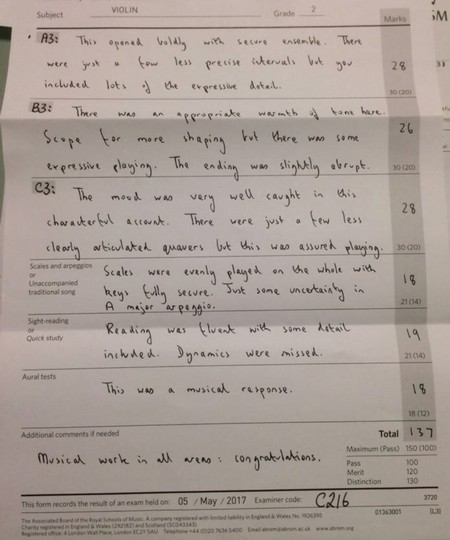 Subject VIOLIN Grade 2
Marks
A3: This opened boldly with secure ensemble. There
were just a few less precise intervals but you 28
included lots of the expressive detail. 30 (20)
B3: There was an appropriate warmth of tone here.
Scope for more shaping but there was some 26
expressive playing. The ending was slightly abrupt. 30 (20)
C3: The mood was very well caught in this
characterful account. There were just a few less 28
clearly articulated quavers but this was assured playing. 30 (20)
Scales and arpeggios
or
Unaccompanied
traditional song
Scales were evenly played on the whole with
keys fully secure. Just some uncertainty in 18
A major arpeggio. 21 (14)
Sight-reading
or
Quick study
Reading was fluent with some detail 19
included. Dynamics were missed. 21 (14)
Aural tests
This was a musical response. 18
18 (12)
Additional comments if needed Total 137
Musical work in all areas: congratulations. Maximum (Pass) 150 (100)
Pass 100
Merit 120
Distinction 130
This form records the result of an exam held on: 05 / May / 2017 Examiner code: C216 3720
The Associated Board of the Royal Schools of Music. A company registered with limited liability in England & Wales (1926395).
Charity registered in England & Wales (292182) and Scotland (SC043343).
Registered office: 4 London Wall Place, London EC2Y 5AU Telephone +44 (0)20 7636 5400 Email abrsm@abrsm.ac.uk www.abrsm.org
01363001